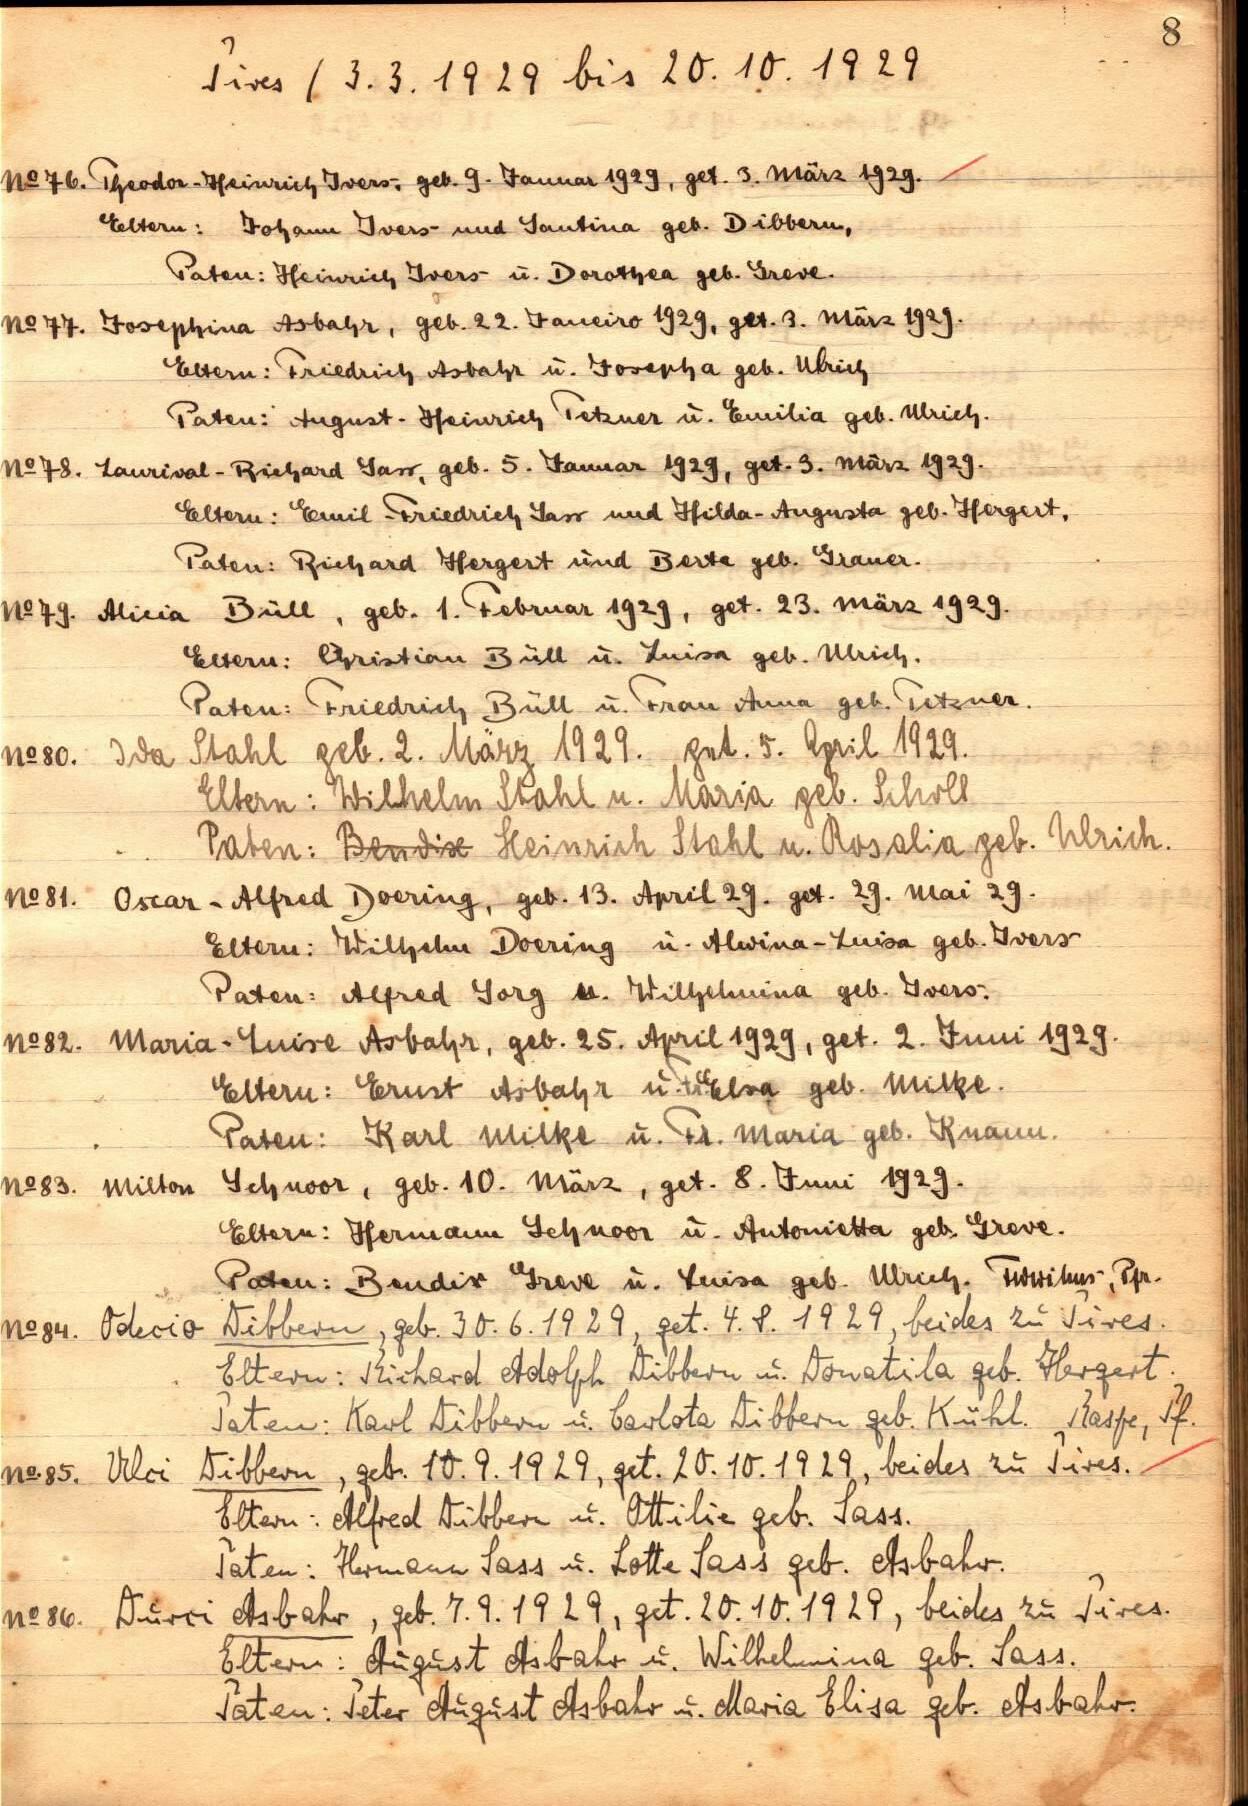 8
Pires / 3. 3. 1929 bis 20. 10. 1929
No 76. Theodor-Heinrich Ivers, geb. 9. Januar 1929, get. 3. März 1929.
Eltern: Johann Ivers und Santina geb. Dibbern,
Paten: Heinrich Ivers u. Dorothea geb. Greve.
No 77. Josephina Asbahr, geb. 22. Janeiro 1929, get. 3. März 1929.
Eltern: Friedrich Asbahr u. Josepha geb. Ulrich
Paten: August-Heinrich Tetzner u. Emilia geb. Ulrich.
No 78. Laurival-Richard Sass, geb. 5. Januar 1929, get. 3. März 1929.
Eltern: Emil-Friedrich Sass und Hilda-Augusta geb. Hergert,
Paten: Richard Hergert und Berta geb. Grauer.
No 79. Alicia Büll, geb. 1. Februar 1929, get. 23. März 1929.
Eltern: Christian Büll u. Luisa geb. Ulrich.
Paten: Friedrich Büll u. Frau Anna geb. Tetzner.
No 80. Ida Stahl geb. 2. März 1929. get. 5. April 1929.
Eltern: Wilhelm Stahl u. Maria geb. Scholl
Paten: Bendix Heinrich Stahl u. Rosalia geb. Ulrich.
No 81. Oscar-Alfred Doering, geb. 13. April 29. get. 29. Mai 29.
Eltern: Wilhelm Doering u. Alwina-Luisa geb. Ivers
Paten: Alfred Sorg u. Wilhelmina geb. Ivers.
No 82. Maria-Luise Asbahr, geb. 25. April 1929, get. 2. Juni 1929.
Eltern: Ernst Asbahr u. Fr. Elsa geb. Milke.
Paten: Karl Milke u. Fr. Maria geb. Knann.
No 83. Milton Schnoor, geb. 10. März, get. 8. Juni 1929.
Eltern: Hermann Schnoor u. Antonietta geb. Greve.
Paten: Bendix Greve u. Luisa geb. Ulrich. Pfr.
No 84. Odecio Dibbern, geb. 30. 6. 1929, get. 4. 8. 1929, beides zu Pires.
Eltern: Richard Adolph Dibbern u. Donatila geb. Hergert.
Paten: Karl Dibbern u. Carlota Dibbern geb. Kühl. Raspe, Pf.
No. 85. Ulci Dibbern, geb. 10. 9. 1929, get. 20. 10. 1929, beides zu Pires.
Eltern: Alfred Dibbern u. Ottilie geb. Sass.
Paten: Hermann Sass u. Lotte Sass geb. Asbahr.
No 86. Durci Asbahr, geb. 7. 9. 1929, get. 20. 10. 1929, beides zu Pires.
Eltern: August Asbahr u. Wilhelmina geb. Sass.
Paten: Peter August Asbahr u. Maria Elisa geb. Asbahr.